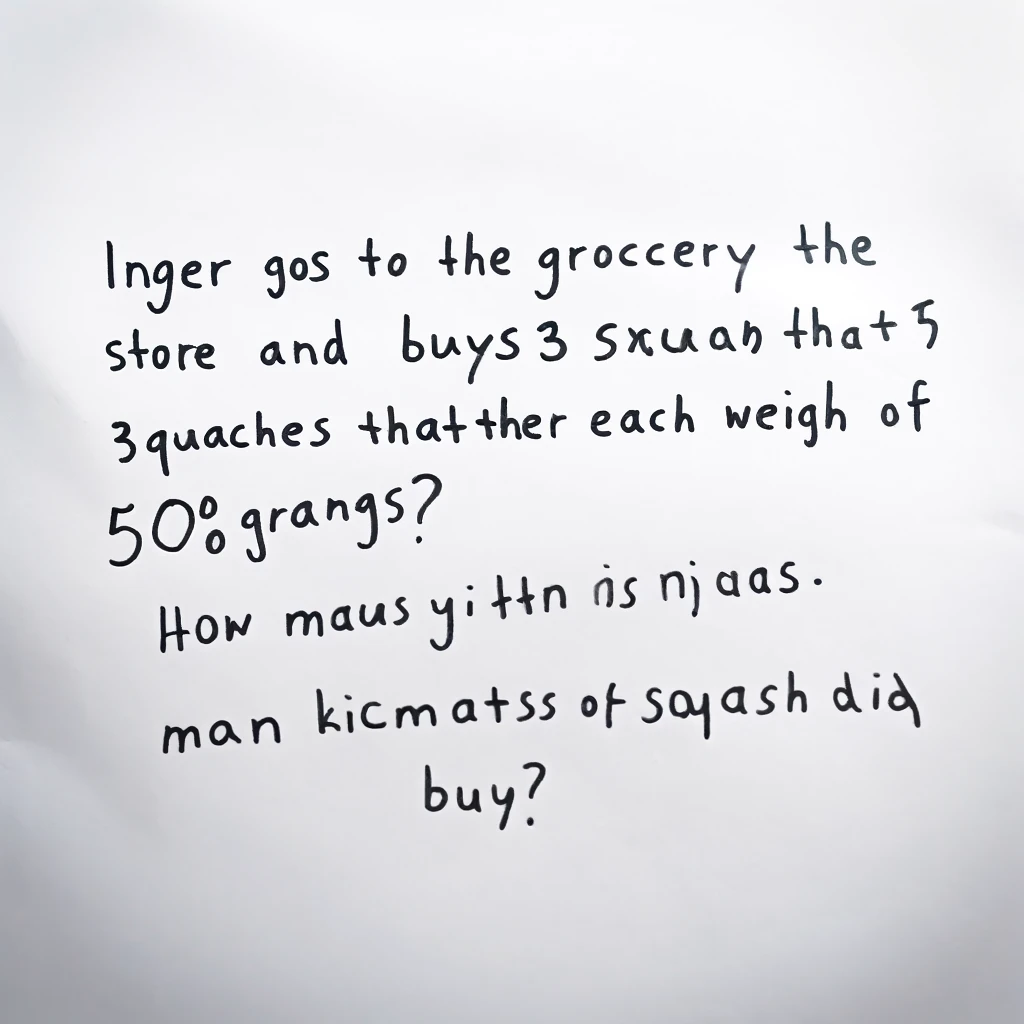 Inger gos to the groccery the
store and buys 3 sxuan that 5
3quaches thatther each weigh of
50% grangs?
How maus yittn is njaas.
man kicmatss of sqyash did
buy?